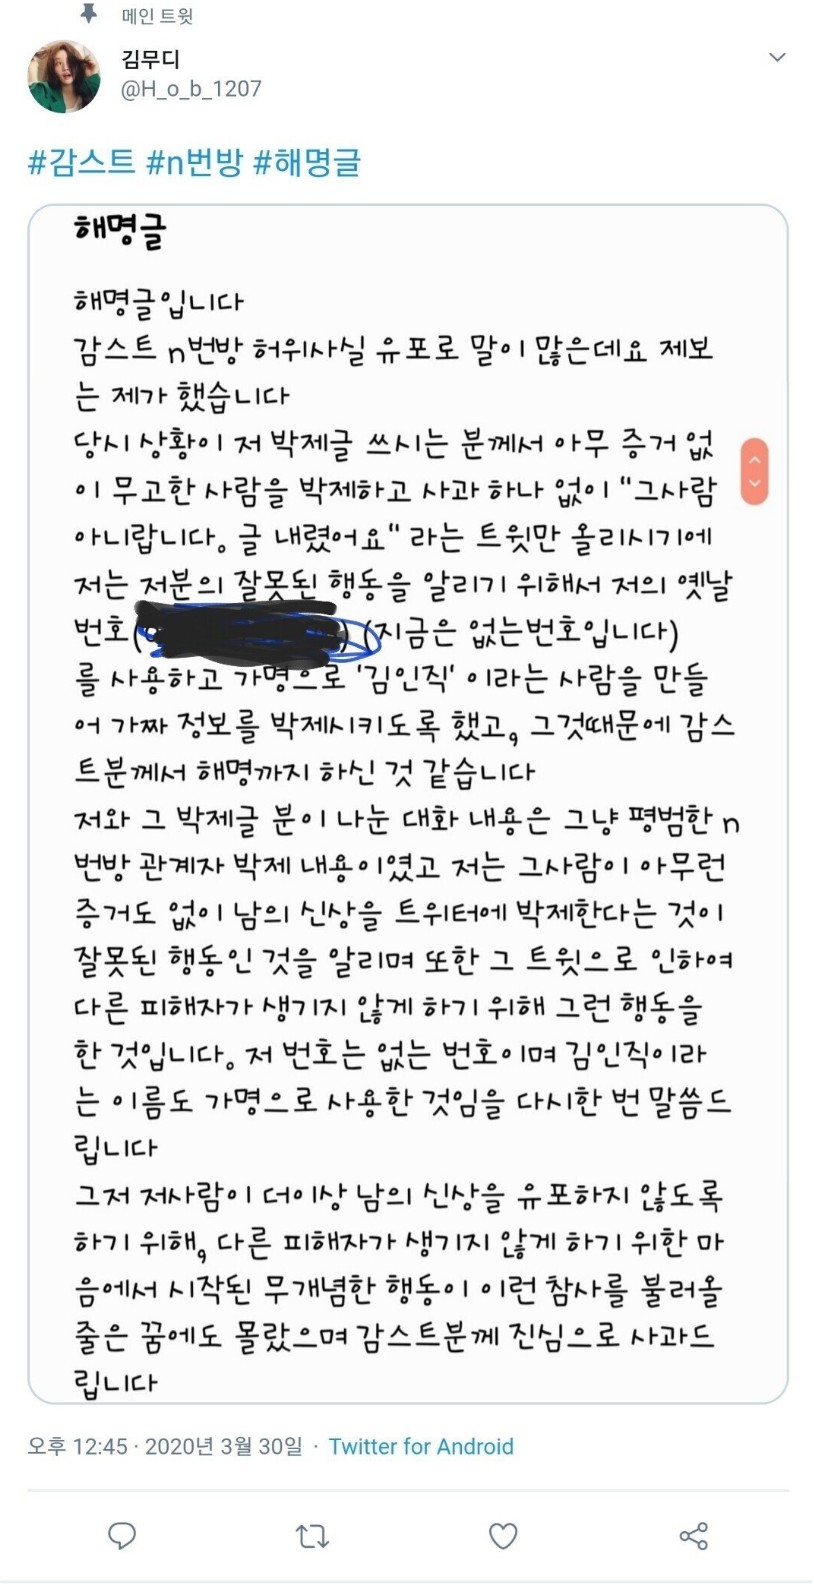 메인 트윗
김무디
@H_o_b_1207
#감스트 #n번방 #해명글
해명글
해명글입니다
감스트 n번방 허위사실 유포로 말이 많은데요 제보
는 제가 했습니다
당시 상황이 저 박제글 쓰시는 분께서 아무 증거 없
이 무고한 사람을 박제하고 사과 하나 없이 "그사람
아니랍니다. 글 내렸어요" 라는 트윗만 올리시기에
저는 저분의 잘못된 행동을 알리기 위해서 저의 옛날
번호( ) (지금은 없는번호입니다)
를 사용하고 가명으로 '김인직' 이라는 사람을 만들
어 가짜 정보를 박제시키도록 했고, 그것때문에 감스
트분께서 해명까지 하신 것 같습니다
저와 그 박제글 분이 나눈 대화 내용은 그냥 평범한 n
번방 관계자 박제 내용이였고 저는 그사람이 아무런
증거도 없이 남의 신상을 트위터에 박제한다는 것이
잘못된 행동인 것을 알리며 또한 그 트윗으로 인하여
다른 피해자가 생기지 않게 하기 위해 그런 행동을
한 것입니다. 저 번호는 없는 번호이며 김인직이라
는 이름도 가명으로 사용한 것임을 다시한 번 말씀드
립니다
그저 저사람이 더이상 남의 신상을 유포하지 않도록
하기 위해, 다른 피해자가 생기지 않게 하기 위한 마
음에서 시작된 무개념한 행동이 이런 참사를 불러올
줄은 꿈에도 몰랐으며 감스트분께 진심으로 사과드
립니다
오후 12:45 · 2020년 3월 30일 · Twitter for Android